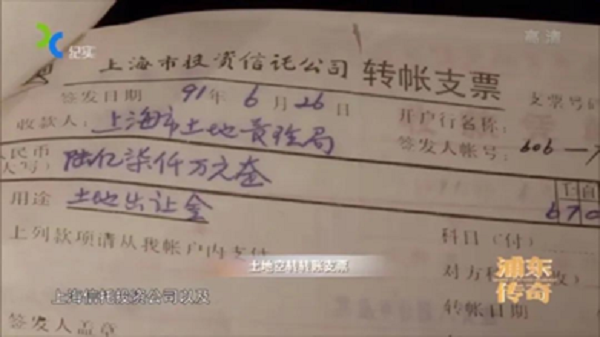 纪实
高清
上海市投资信托公司 转帐支票
签发日期 91年6月26日
支票号码
收款人:上海市土地管理局
开户行名称:
签发人帐号: 606—7
人民币
大写) 陆亿柒仟万元整
千百
670
用途 土地出让金
上列款项请从我帐户内支付
科目(付)
土地空转转账支票
对方科目(收)
浦东
传奇
上海信托投资公司以及
转帐日期
签发人盖章